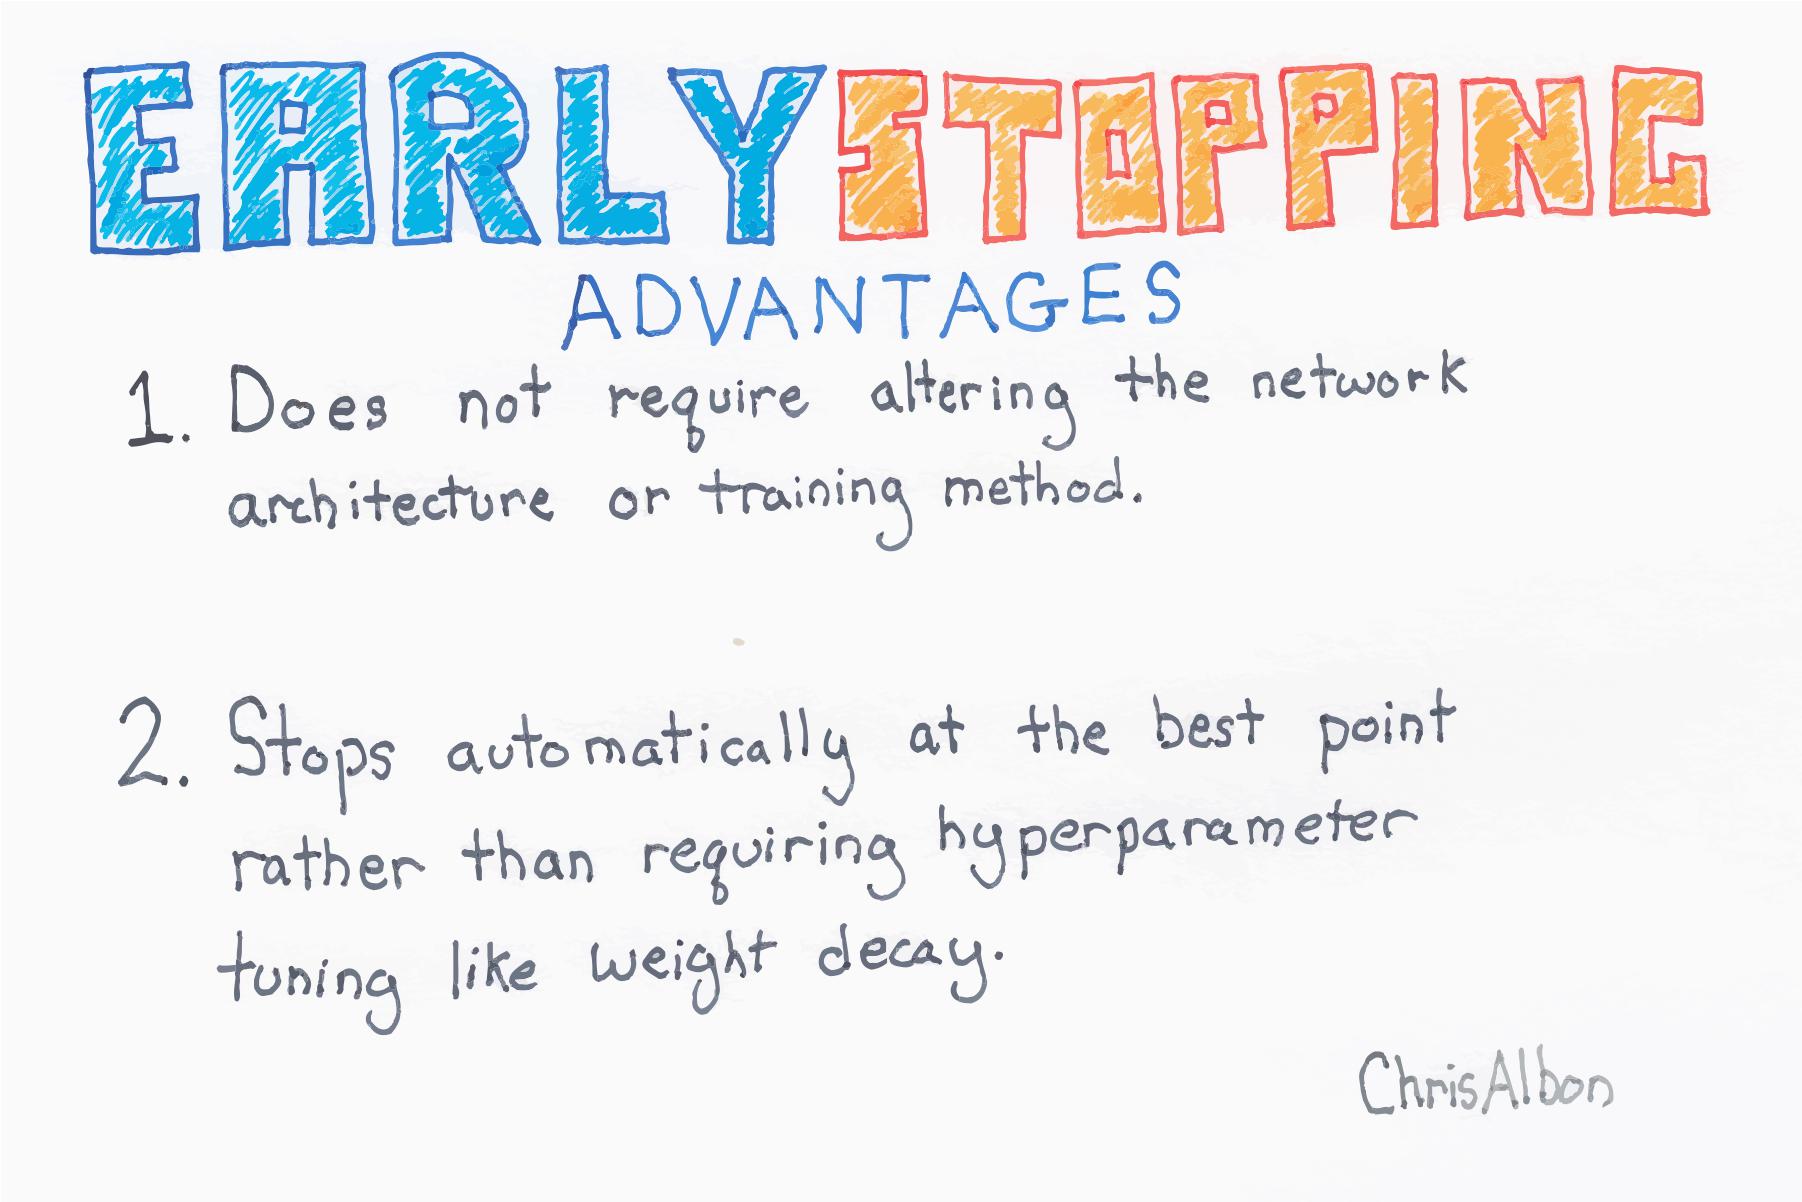 EARLY STOPPING
ADVANTAGES
1. Does not require altering the network
architecture or training method.
2. Stops automatically at the best point
rather than requiring hyperparameter
tuning like weight decay.
ChrisAlbon